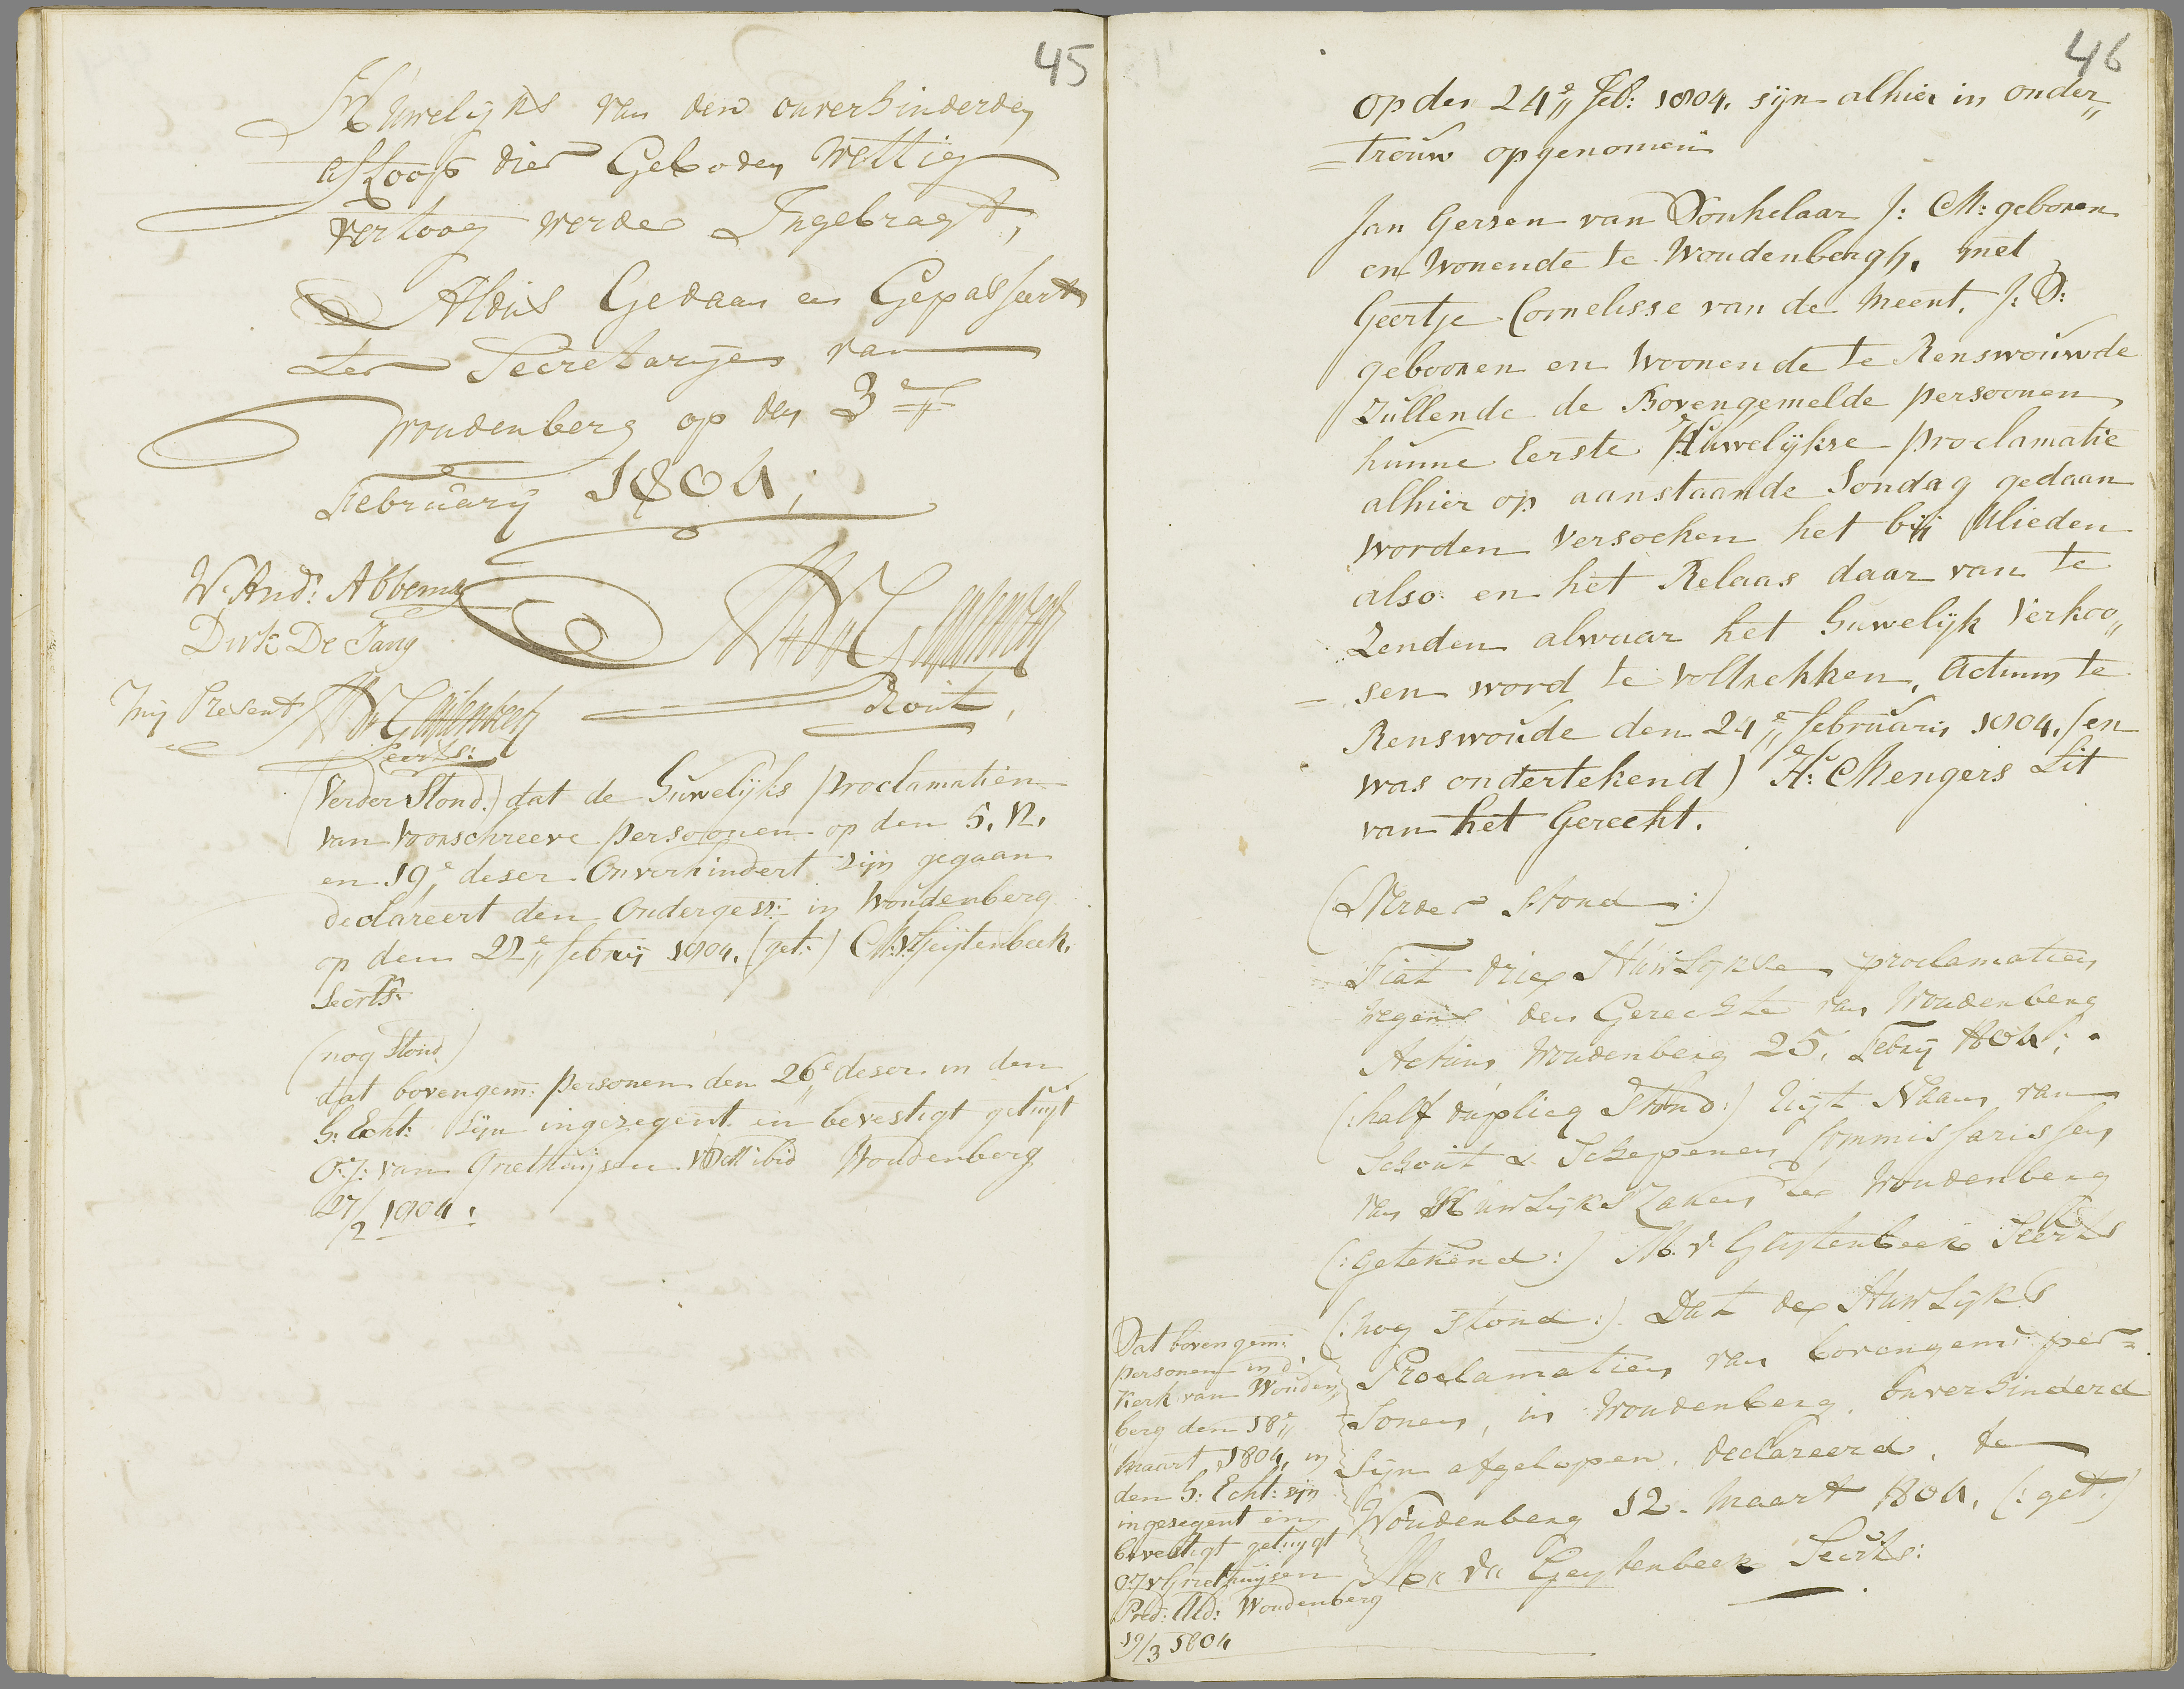 45
Huwelijks van den onverhinderden
afloop dier Geboden Wettig
vertoog werde Ingebragt,
Aldus Gedaan en Gepasseert
ter Secretarije van
Woudenberg op den 3e
February 1804,
W. And: Abbema
Dirk De Jang
Mij Present
Secrts:
Rout,
(Verder Stond.) dat de Huwelijks proclamatiën
van voorschreeve persoonen op den 5. 12.
en 19e deser onverhindert sijn gegaan
declareert den Onderget: in Woudenberg
op den 22e febrij 1804. (get:) M:v:Geijtenbeek.
Secrts:
(nog Stond)
dat bovengem: personen den 26e deser in den
H: Echt: sijn ingezegent en bevestigt getuijt
O: J: van Griethuijsen VDM ibid Woudenberg
27/2 1804.
46
op den 24e Feb: 1804. sijn alhier in onder„
=trouw opgenomen
Jan Gersen van Donkelaar J: M: geboren
en Wonende te Woudenbergh, met
Geertje Cornelisse van de Meent. J: D:
gebooren en Woonende te Renswouwde
Zullende de Bovengemelde persoonen
hunne Eerste Huwelijkse proclamatie
alhier op aanstaande Sondag gedaan
worden versoeken het bij Ulieden
also en het Relaas daar van te
Zenden alwaar het Huwelijk Verkoo„
=sen word te voltrekken, Actum te
Renswoude den 24e februarij 1804. (en
was ondertekend) H: Mengers Lit
van het Gerecht.
(Verder Stond:)
Fiat drie Huwlijkse proclamatien
wegens den Gerechte van Woudenberg
Actum Woudenberg 25. Febrij 1804.
(:half duplicq Stond:) Uijt Naam van
Schout & Schepenen Commissarissen
van Huwlijks Zaken te Woudenberg
(:getekend:) M. v. Geijtenbeek Secrts
(:nog stond:). Dat de Huwlijks
Proclamatien van bovengem: per=
sonen, in Woudenberg. onverhinderd
sijn afgelopen. declareerd. te
Woudenberg 12. Maart 1804. (:get:)
M. v. Geijtenbeek Secrts:
Dat bovengem:
personen in d'
Kerk van Wouden
berg den 18e
Maart 1804, in
den H: Echt: sijn
ingezegent en
bevestigt getuijgt
O:J:v Griethuijsen
Pred: Ald: Woudenberg
19/3 1804